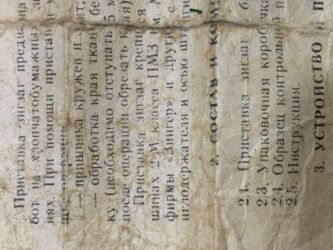 Приставка зигзаг предна
бот на хлопчатобумажны
нях. При помощи приставки м
— пришивка кружей и
— обработка края ткан
ку (необходимо отступить 5 м
после операции обрезать край
Приставка зигзаг крепи
шинах 2-М класса ПМЗ
фирмы «Зингер» и други
иглодержателя и осью шпи
2. СОСТАВ И КО
2.1. Приставка зигзаг
2.3. Упаковочная коробка
2.4. Образец контрольной
2.5. Инструкция.
3. УСТРОЙСТВО И П